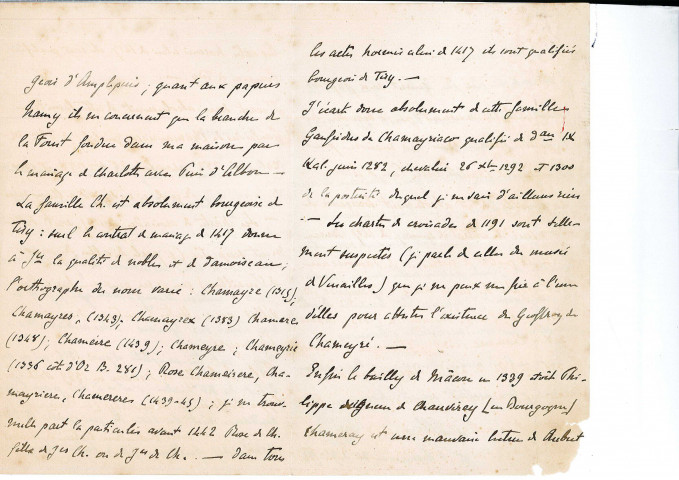 geois d'Amplepuis ; quant aux papiers
Namy ils ne concernent que la branche de
la Forest fondue dans ma maison par
le mariage de Charlotte avec Puis d'Albon —
La famille Ch. est absolument bourgeoise de
Tizy : seul le contrat de mariage de 1417 donne
à Jes la qualité de nobles et de damoiseau ;
l'orthographe du nom varie : Chamayre (1315) ;
Chamayres, (1343) ; Chamayrex (1383) Chamares
(1348) ; Chameire (1439) ; Chameyre ; Chameyrie
(1336 côte d'Or B. 281) ; Rose Chameisere, Cha-
mayriere, Chamereres (1439-45) ; je ne trouve
nulle part la particule avant 1442 Rose de Ch.
fille de Jes Ch. ou de Jes de Ch. — dans tous
les actes depuis celui de 1417 ils sont qualifiés
bourgeois de Tizy. —
J'écarte donc absolument de cette famille
Gaufridus de Chamayriaco qualifié de dans IX
Kal. juin 1282, chevalier 26 xbre 1292 et 1300
de la postérité duquel je ne sais d'ailleurs rien
— Les chartes de croisades de 1191 sont telle-
ment suspectes (je parle de celles du musée
de Versailles) que je ne peux me fier à l'une
d'elles pour attester l'existence de Geoffroy de
Chameyré. —
Enfin le bailly de Mâcon en 1339 était Phi-
lippe seigneur de Chauvirey (en Bourgogne)
Chameray est une mauvaise lecture de Aubret